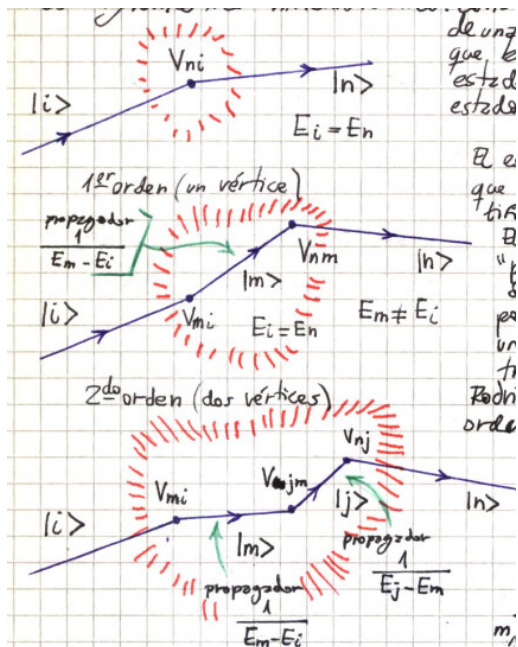 de una
que e
V_ni
|i>
|n>
estado
estado
E_i = E_n
El e
1er orden (un vértice)
que
propagador
1
E_m - E_i
V_nm
|n>
|m>
|i>
V_mi
E_i = E_n
E_m ≠ E_i
un
2do orden (dos vértices)
Rodri
orde
V_nj
V_mi
V_jm
|i>
|j>
|n>
|m>
propagador
1
E_j - E_m
propagador
1
E_m - E_i
m